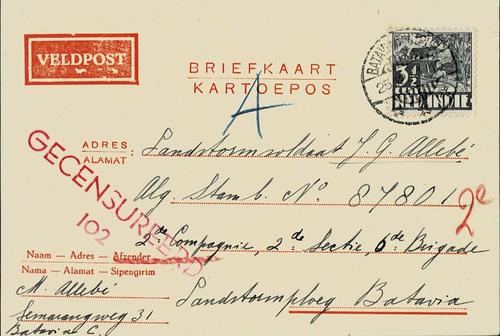 VELDPOST
BRIEFKAART
KARTOEPOS
A
3½
NED. INDIE
BATAVIA
ADRES : Landstormsoldaat J. G. Allebé
ALAMAT
Alg. Stamb. No 87801
2e
GECENSUREERD
102
2de Compagnie, 2de Sectie, 6de Brigade
Naam – Adres – Afzender
Nama – Alamat – Sipengirim
Landstormploeg Batavia
M. Allebé
Semarangweg 31
Batavia C.